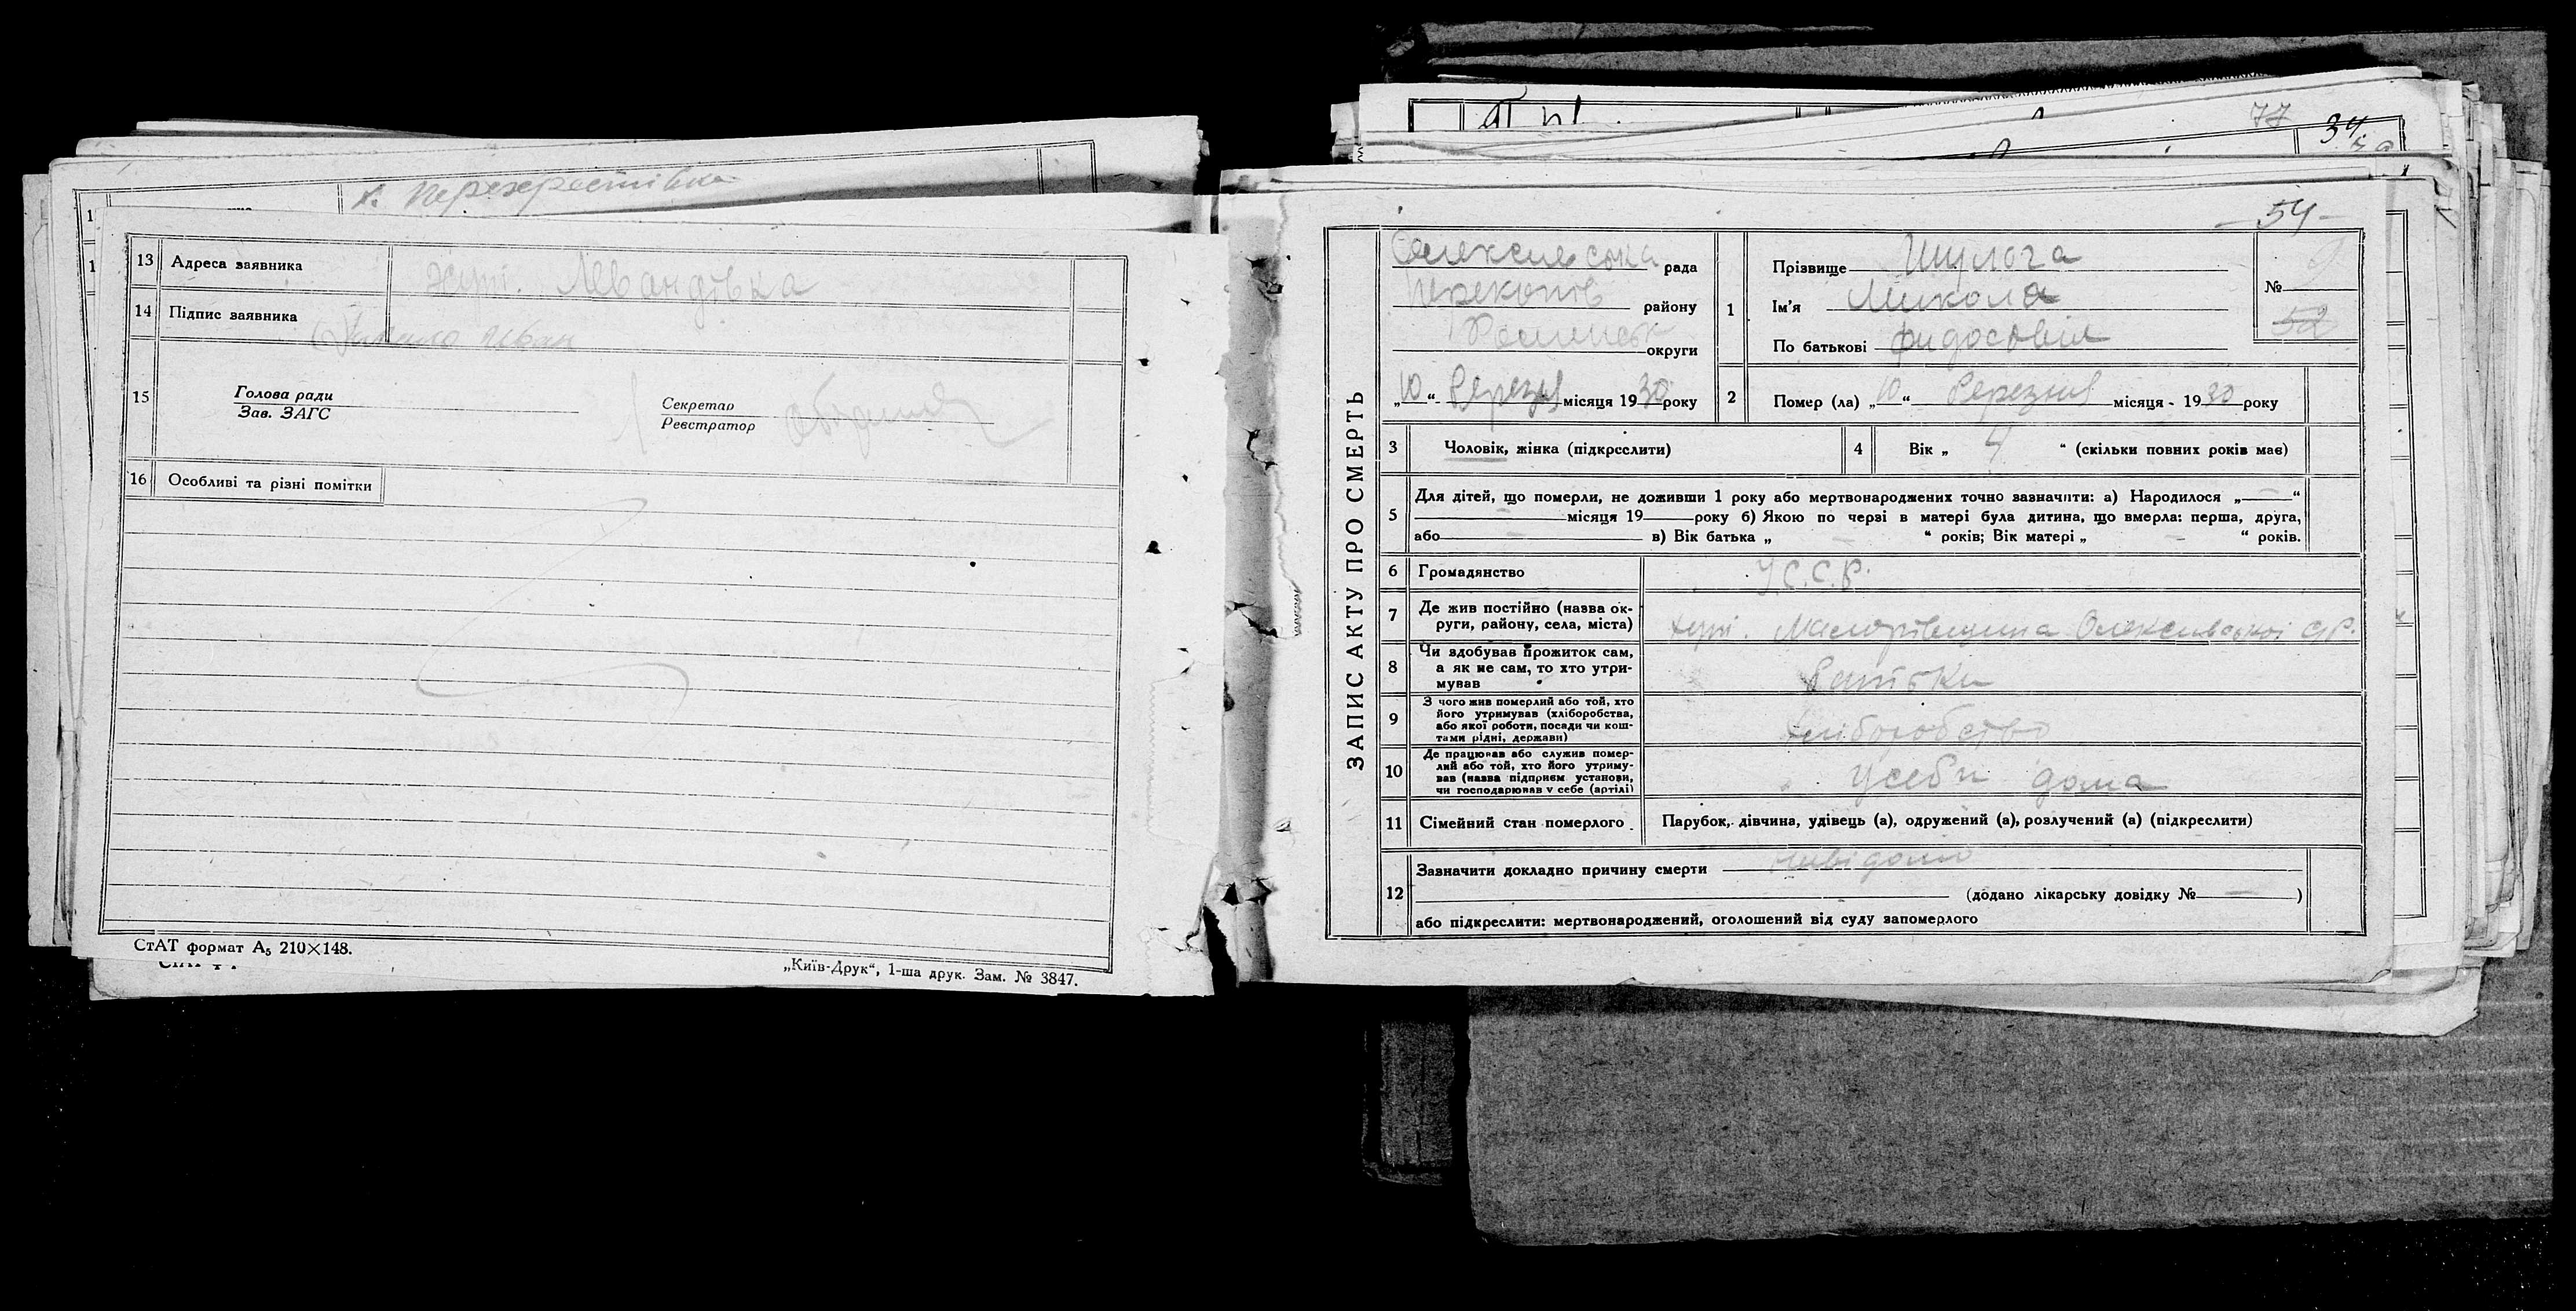 с. Перехрестівка
13 Адреса заявника
хут. Левандівка
14 Підпис заявника
Іван
15 Голова ради
Зав. ЗАГС
Секретар
Реєстратор
16 Особливі та різні помітки
СтАТ формат А₅ 210×148.
„Київ-Друк“, 1-ша друк. Зам. № 3847.
77
34
54
ЗАПИС АКТУ ПРО СМЕРТЬ
рада
району
округи
„10“ Березня місяця 1930 року
1 Прізвище Шулога
Ім'я Микола
По батькові
№
52
2 Помер (ла) „10“ Березня місяця 1930 року
3 Чоловік, жінка (підкреслити)
4 Вік „ 4 “ (скільки повних років має)
5 Для дітей, що померли, не доживши 1 року або мертвонароджених точно зазначити: а) Народилося „—“
місяця 19 року б) Якою по черзі в матері була дитина, що вмерла: перша, друга,
або — в) Вік батька „ — “ років; Вік матері „ — “ років.
6 Громадянство У.С.С.Р.
7 Де жив постійно (назва ок-
руги, району, села, міста)
хут. Олексивської с/р.
8 Чи здобував прожиток сам,
а як не сам, то хто утри-
мував
батьки
9 З чого жив померлий або той, хто
його утримував (хліборобства,
або якої роботи, посади чи кош-
тами рідні, держави)
хліборобство
10 Де працював або служив помер-
лий або той, хто його утриму-
вав (назва підприєм. установи,
чи господарював у себе (артілі)
у себе дома
11 Сімейний стан померлого
Парубок, дівчина, удівець (а), одружений (а), розлучений (а) (підкреслити)
12 Зазначити докладно причину смерти невідомо
(додано лікарську довідку № — )
або підкреслити: мертвонароджений, оголошений від суду запомерлого